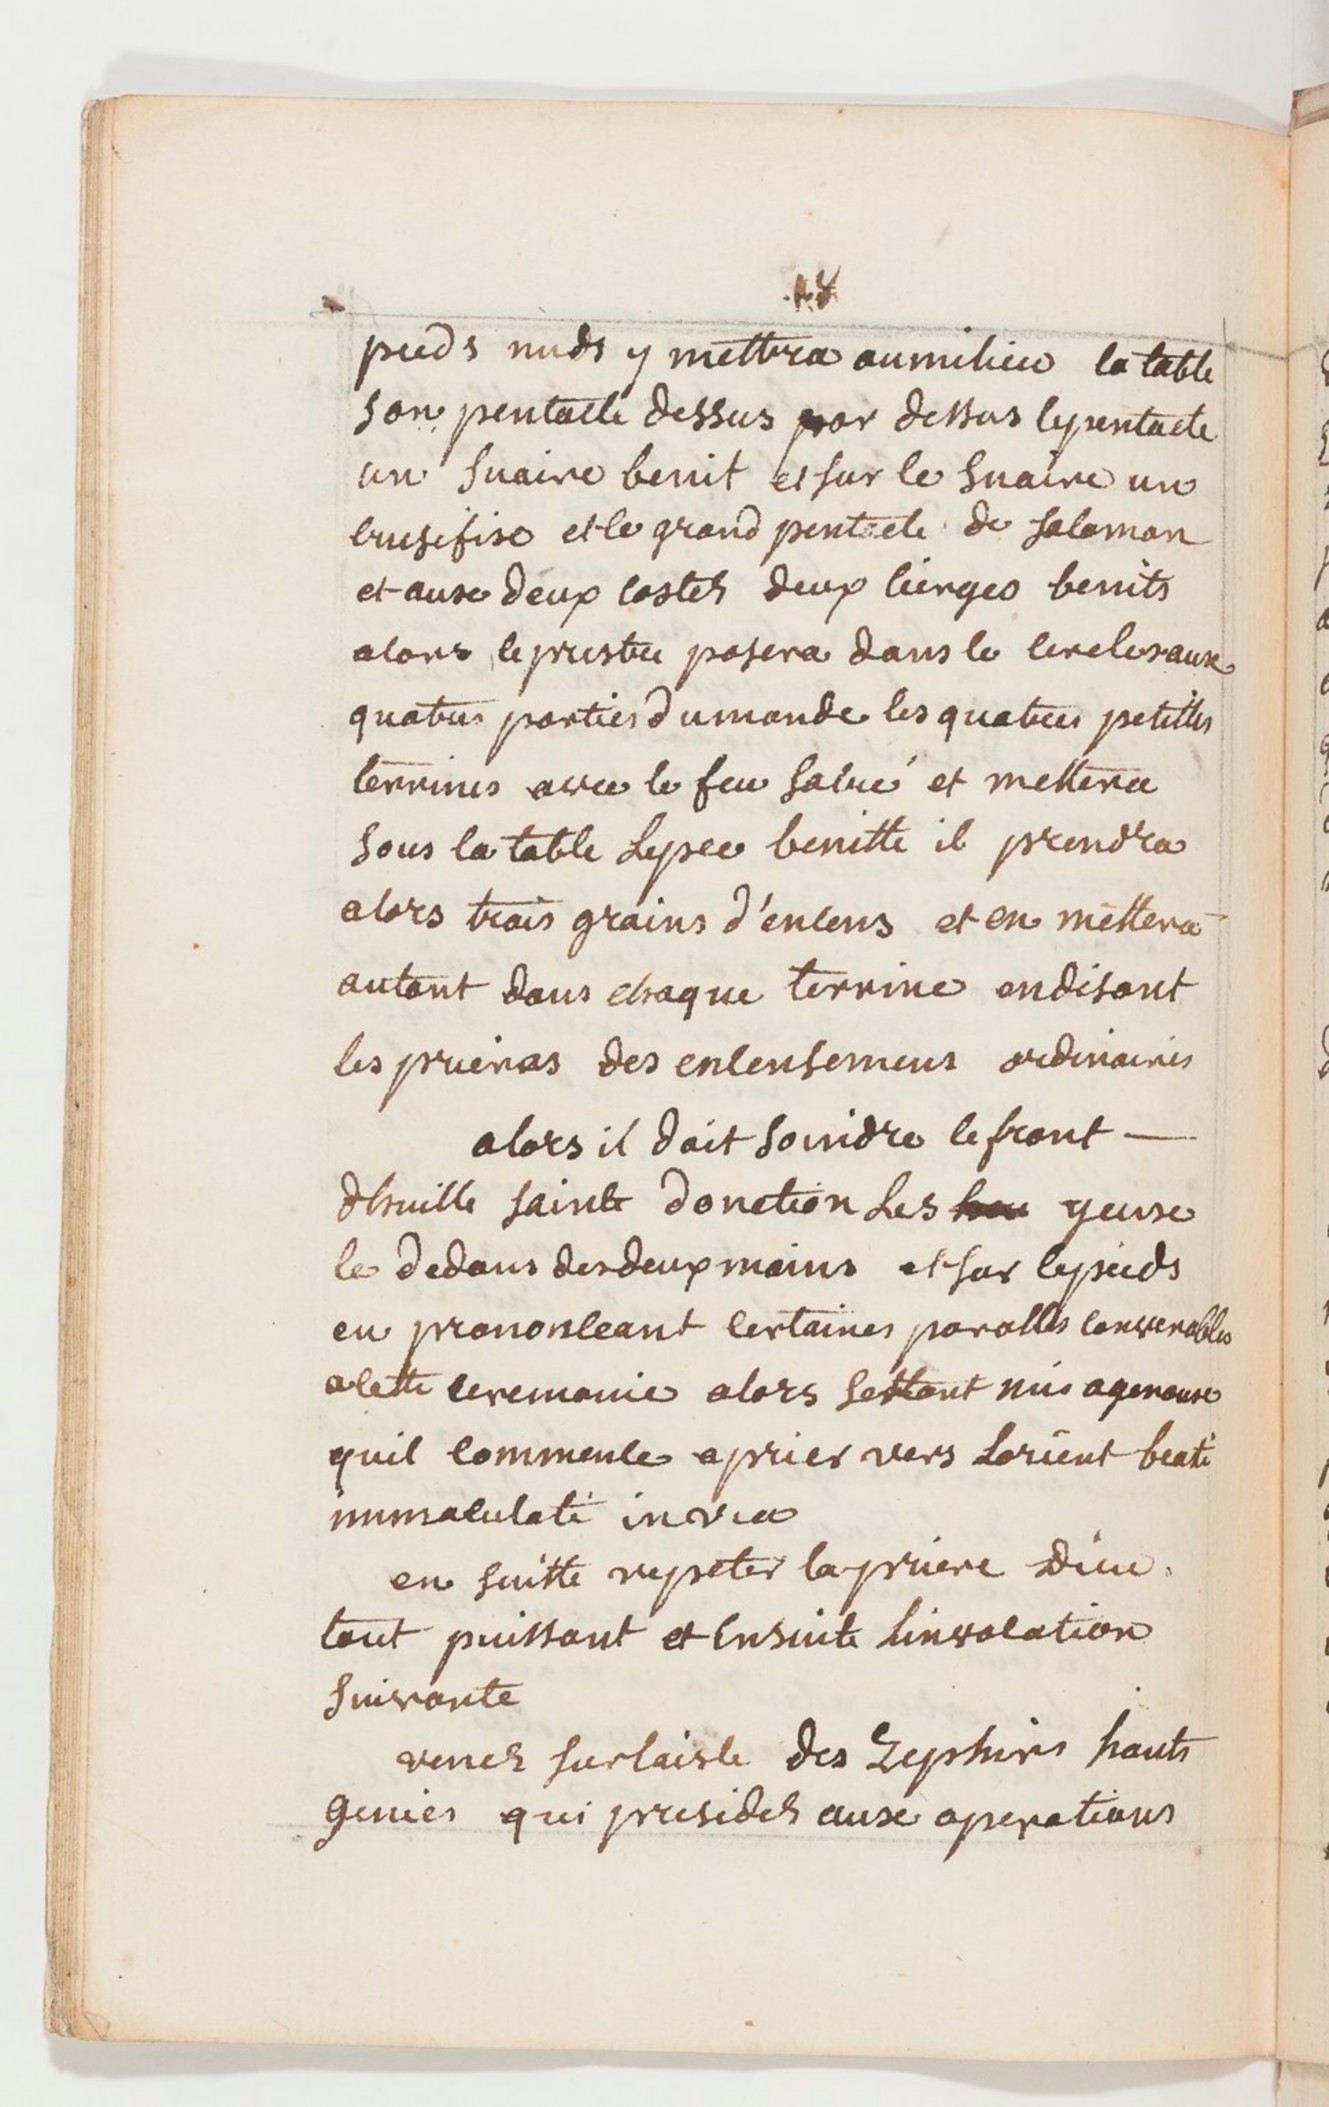 pieds nuds y mettra aumilieu la table
son pentacle dessus par dessus lepentacle
un suaire benit et sur le suaire un
crusifixe et le grand pentacle de salomon
et auxe deux costés deux cierges benits
alors leprestre posera dans le cercles auxe
quatres parties dumonde les quatres petittes
terrines avec le feu sacré et mettera
sous la table Lepee benitte il prendra
alors trois grains d'encens et en mettera
autant dans chaque terrine endisant
les prieres des encensemens ordinaires
alors il doit soindre lefront —
dhuille sainte donction Les yeuxe
le dedans desdeux mains et sur lepieds
en prononceant certaines parolles convenables
acette ceremonie alors sestant mis agenouxe
quil commence aprier vers Lorient beati
immaculati in via
en suitte repeter lapriere Dieu
tout puissant et Ensuite Linvocation
suivante
venez surlaisle des Zephirs hauts
genies qui presidez auxe operations